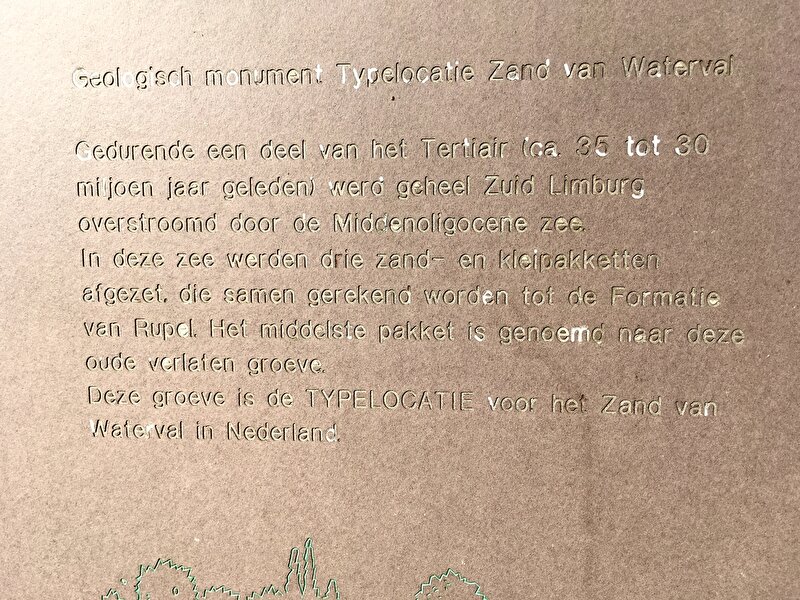 Geologisch monument Typelocatie Zand van Waterval
Gedurende een deel van het Tertiair (ca. 35 tot 30
miljoen jaar geleden) werd geheel Zuid Limburg
overstroomd door de Middenoligocene zee.
In deze zee werden drie zand- en kleipakketten
afgezet, die samen gerekend worden tot de Formatie
van Rupel. Het middelste pakket is genoemd naar deze
oude verlaten groeve.
Deze groeve is de TYPELOCATIE voor het Zand van
Waterval in Nederland.